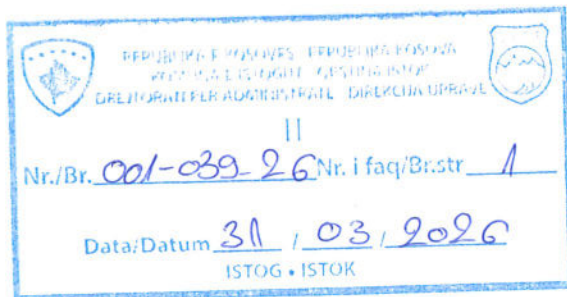 REPUBLIKA E KOSOVËS - REPUBLIKA KOSOVA
KOMUNA E ISTOGUT - OPŠTINA ISTOK
DREJTORATI PËR ADMINISTRATË - DIREKCIJA UPRAVE
II
Nr./Br. 001-039-26 Nr. i faq/Br.str 1
Data/Datum 31 / 03 / 2026
ISTOG • ISTOK